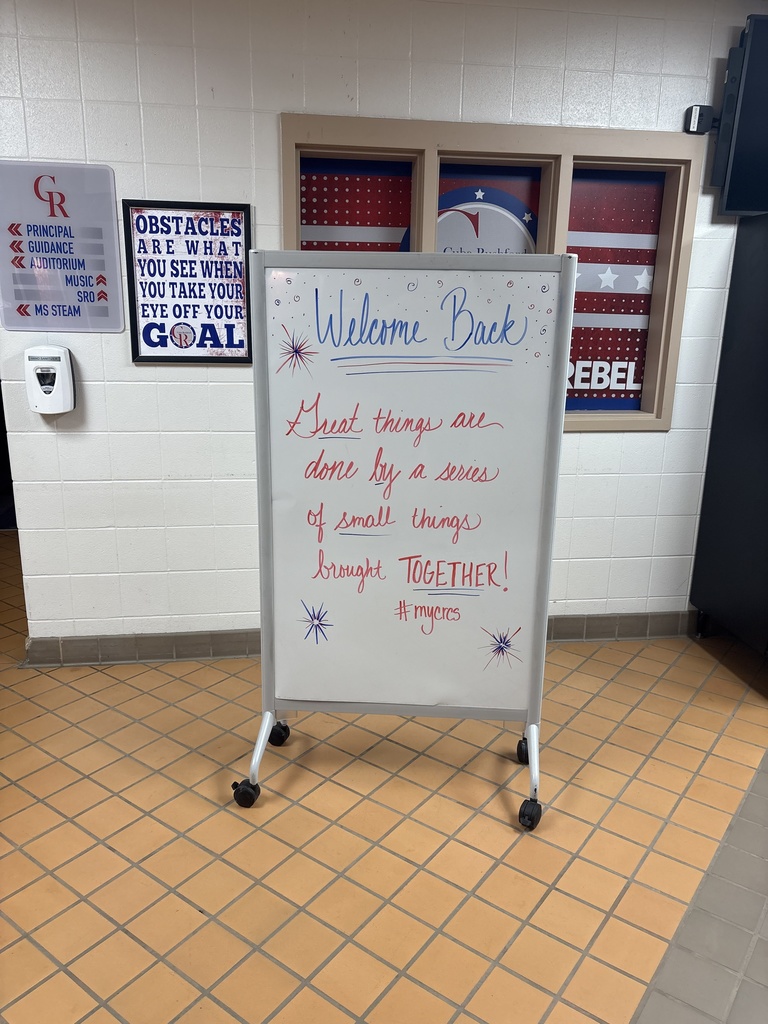 CR
PRINCIPAL
GUIDANCE
AUDITORIUM
MUSIC
SRO
MS STEAM
OBSTACLES
ARE WHAT
YOU SEE WHEN
YOU TAKE YOUR
EYE OFF YOUR
GOAL
C
Cuba-Rushford
REBEL
Welcome Back
Great things are
done by a series
of small things
brought TOGETHER!
#mycrcs